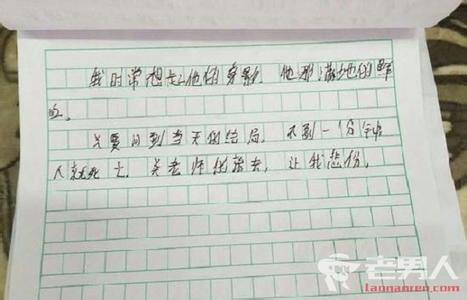 我时常想起他的身影 他那满地的鲜
血。
只要问到当天的结局,不到一1分钟
人就死亡.老师的去,让我悲份.
老男人
lannanren.com